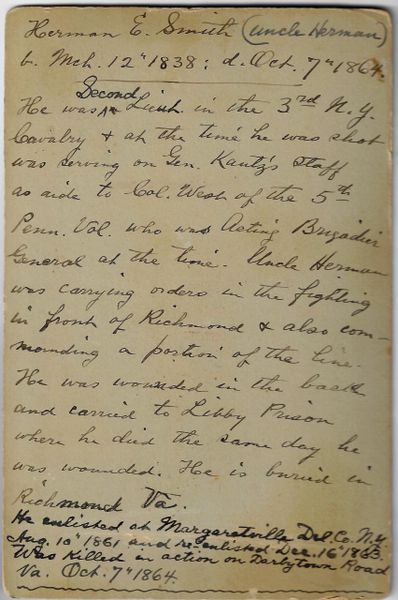 Herman E. Smith (Uncle Herman)
b. Mch. 12" 1838: d. Oct. 7" 1864.
Second
He was A Lieut in the 3rd N.Y.
Cavalry & at the time he was shot
was serving on Gen. Kautz's staff
as aide to Col. West of the 5th
Penn. Vol. who was Acting Brigadier
General at the time. Uncle Herman
was carrying orders in the fighting
in front of Richmond & also com-
manding a portion of the line.
He was wounded in the back
and carried to Libby Prison
where he died the same day he
was wounded. He is buried in
Richmond Va.
He enlisted at Margaretville Del. Co. N.Y.
Aug. 10" 1861 and re-enlisted Dec. 16" 1863
Was Killed in action on Darbytown Road
Va. Oct. 7" 1864.